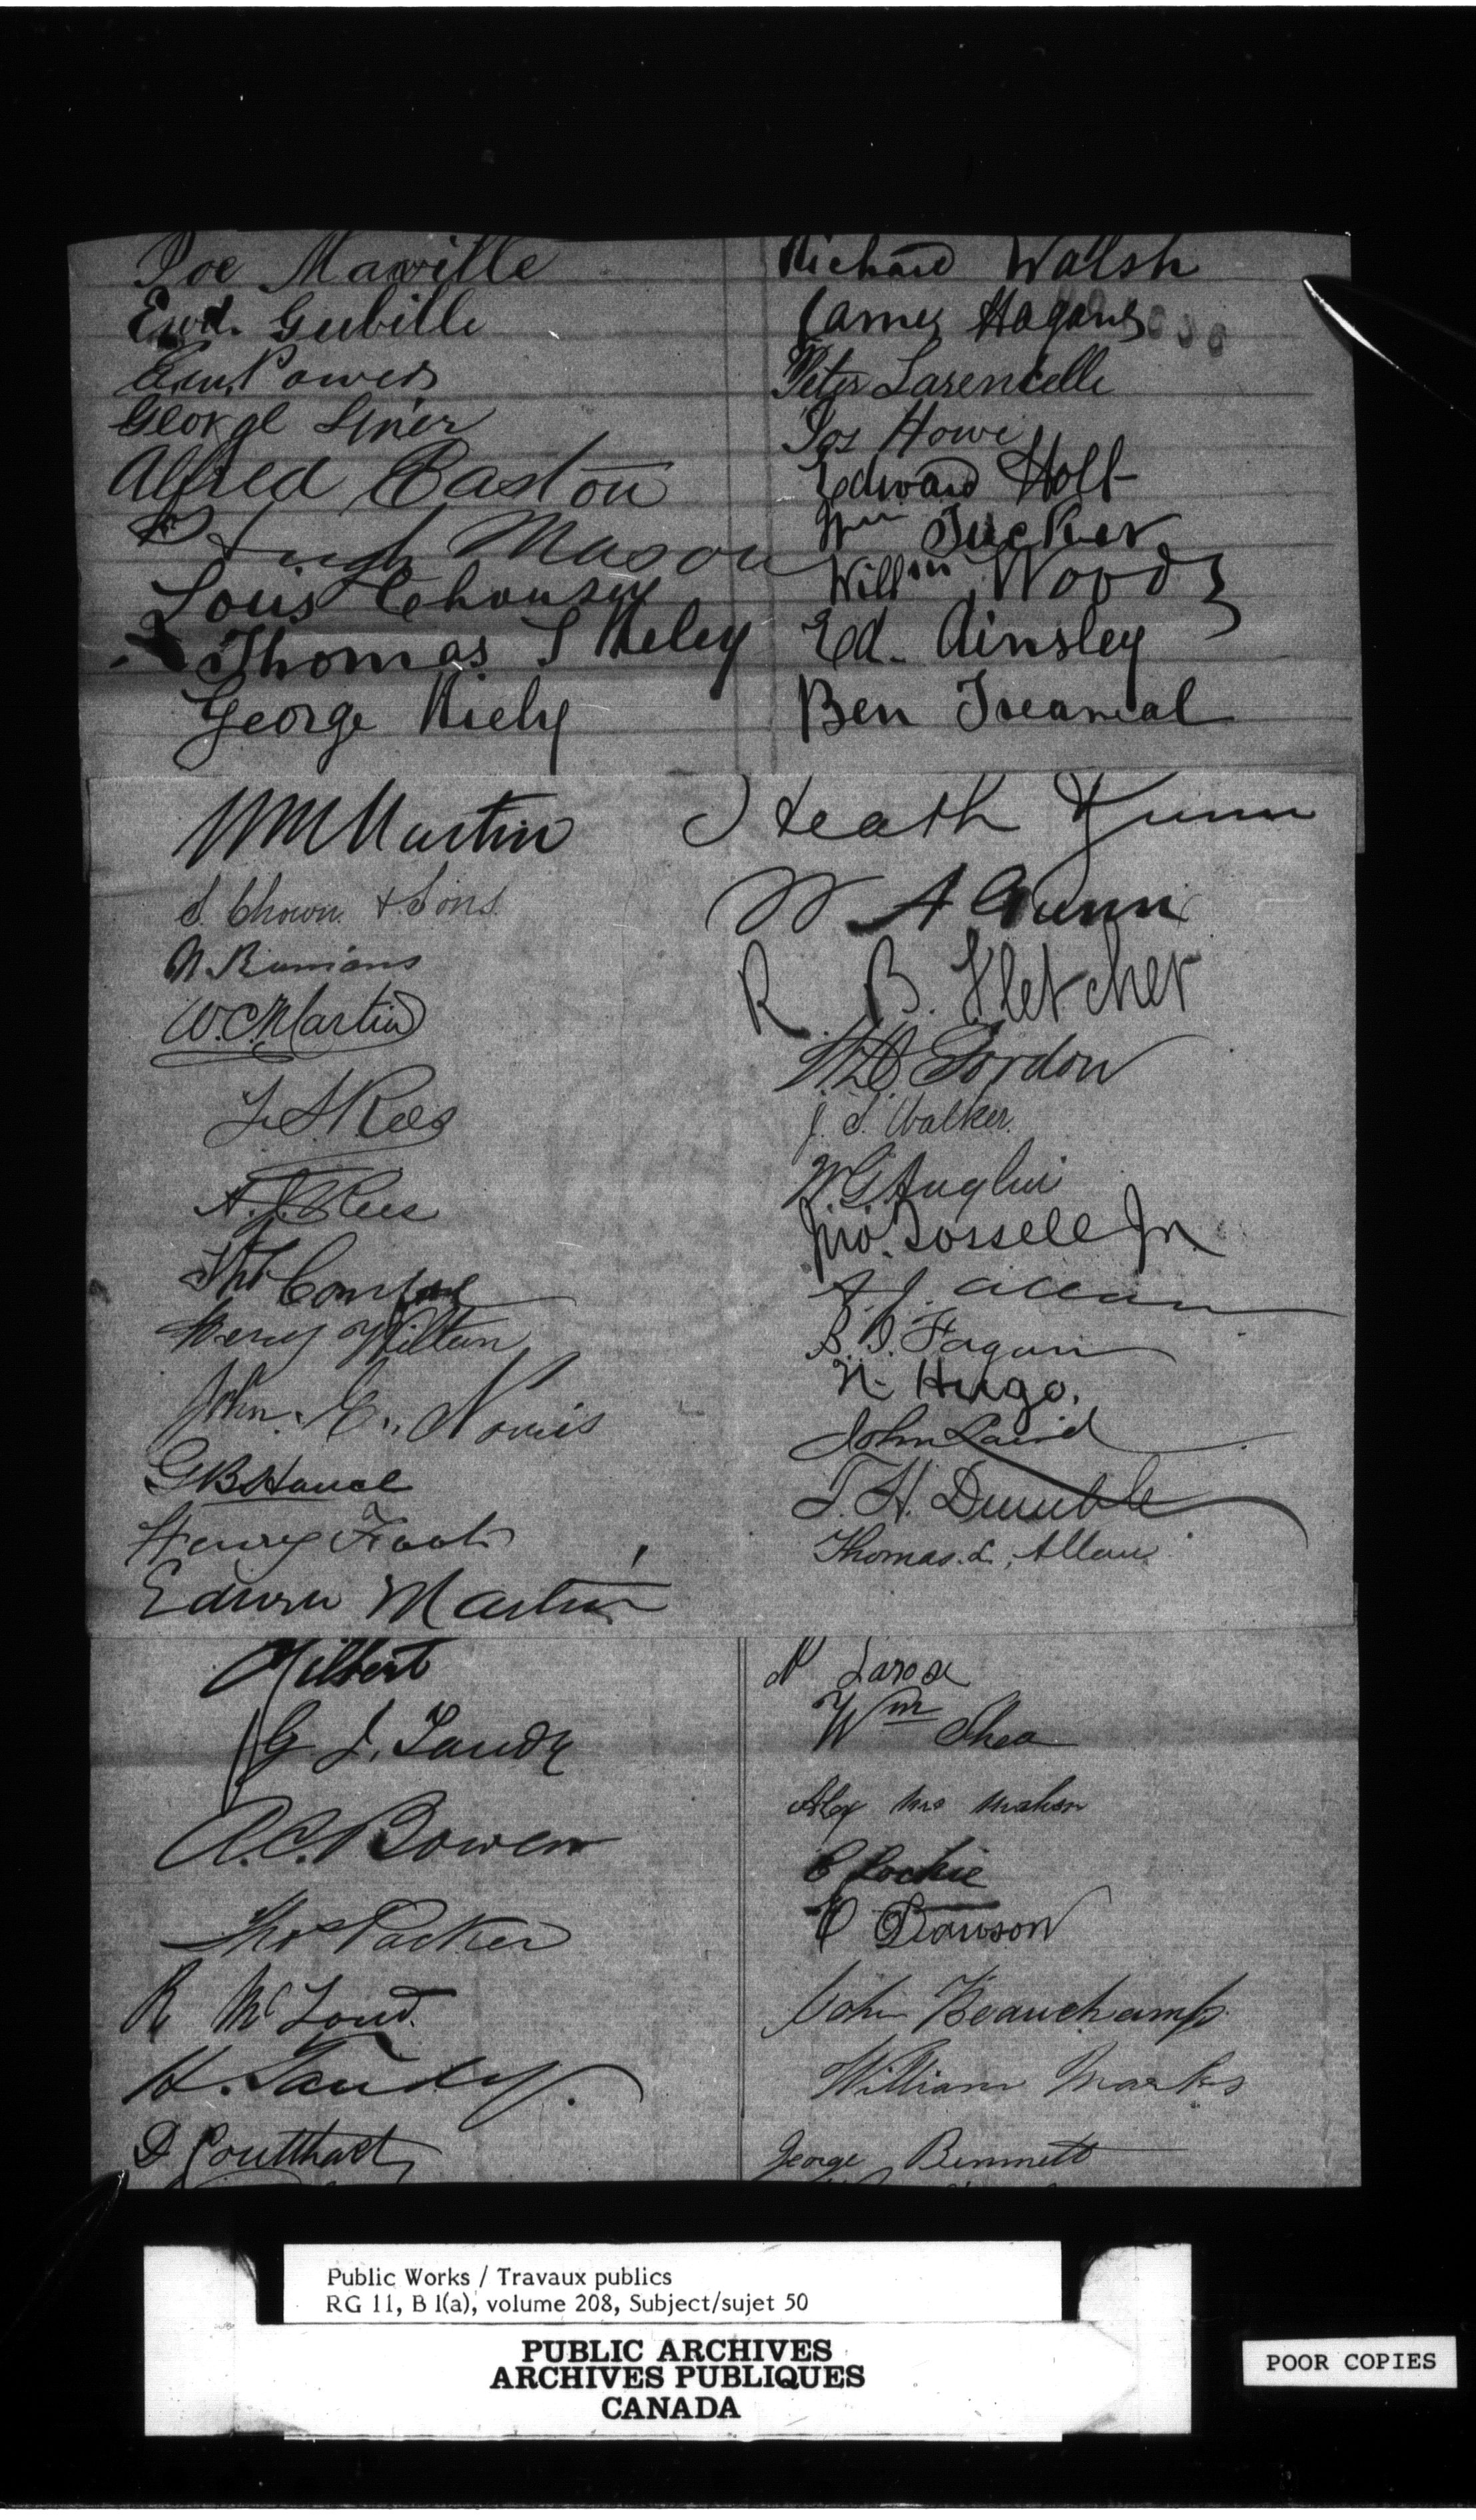 Joe Maville
Ewd. Gubille
Powers
George
Alfred Easton
Hugh Mason
Louis
Thomas J Kiely
George Kiely
Richard Walsh
James Hagans
Peter Larencelle
Jos Howe
Edward Holt
Wm Tucker
Willm Woods
Ed. Ainsley
Ben
W M Martin
S. Chown & Sons
N. Runians
W. C. Martin
L. S. Rees
A. J. Rees
Thos
Henry Wilton
John. C. Norris
G B
Henry Foot
Edwin Martin
Heath Gunn
W A Gunn
R. B. Fletcher
W. D. Gordon
J. S. Walker.
W. G. Anglin
Jno. Tossell Jr
A. J. Allan
B. J. Fagan
N. Hugo.
John Laird
T. H. Dumble
Thomas. L. Allan
Gilbert
G J. Tandy
A. C. Bowen
Thos Packer
R McLoud.
H. Tandy.
D Coutthart
N Larose
Wm Shea
Alex Mc Mahon
C Lockie
Dawson
John Beauchamp
William Marks
George Bennett
Public Works / Travaux publics
RG 11, B 1(a), volume 208, Subject/sujet 50
PUBLIC ARCHIVES
ARCHIVES PUBLIQUES
CANADA
POOR COPIES